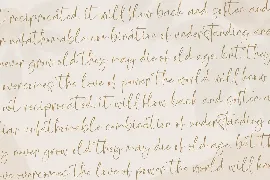 reciprocated it will flow back and soften and
unfathomable combination of understanding and
never grow old they may die of old age but they
overcomes the love of power the world will know
not reciprocated it will flow back and soften a
unfathomable combination of understanding a
never grow old they may die of old age but t
overcomes the love of power the world will